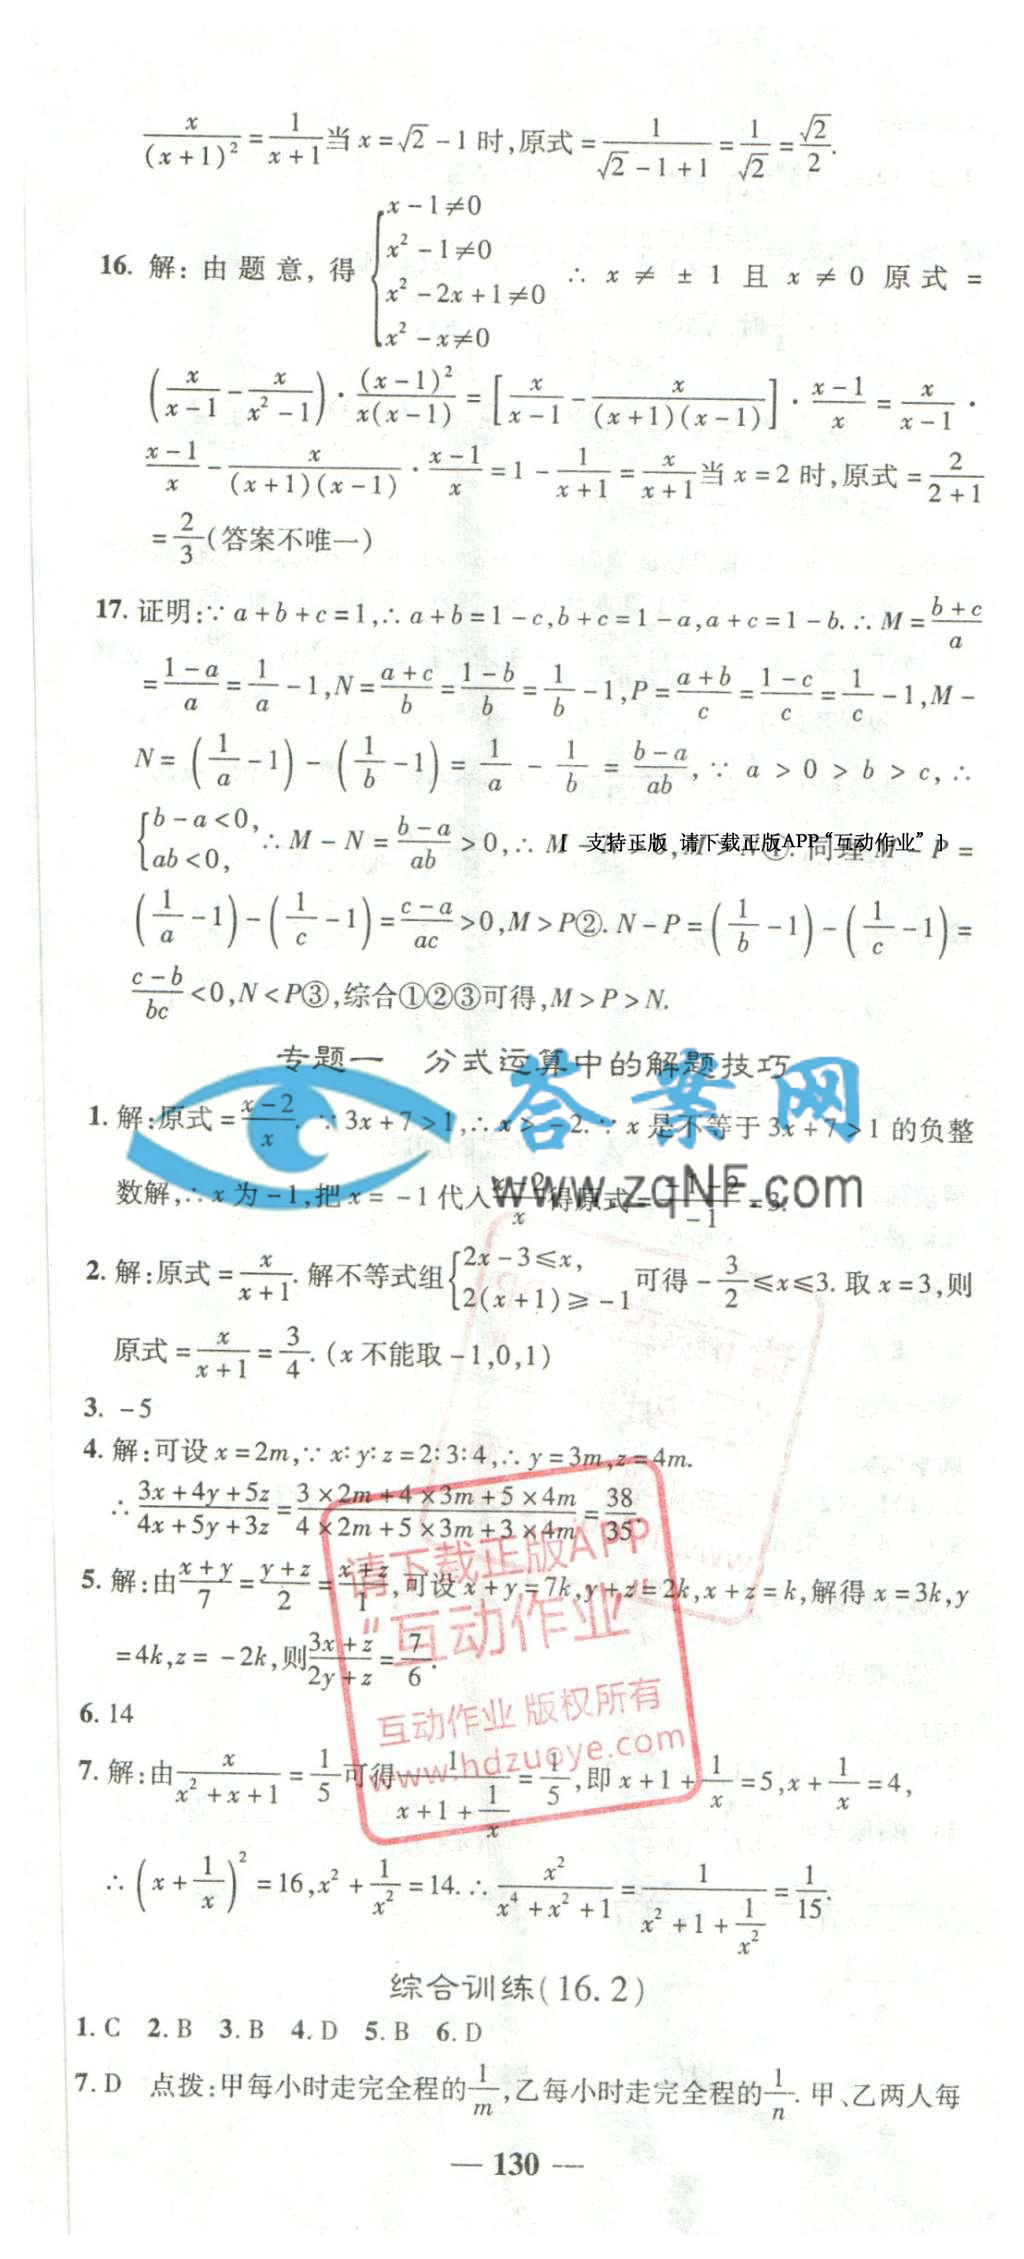 x/(x+1)²=1/(x+1)当x=√2-1时,原式=1/(√2-1+1)=1/√2=√2/2.
16. 解:由题意,得{x-1≠0 x²-1≠0 x²-2x+1≠0 x²-x≠0 ∴x≠±1且x≠0 原式=
(x/(x-1)-x/(x²-1))·(x-1)²/x(x-1)=[x/(x-1)-x/(x+1)(x-1)]·(x-1)/x=x/(x-1)·
(x-1)/x-x/(x+1)(x-1)·(x-1)/x=1-1/(x+1)=x/(x+1)当x=2时,原式=2/(2+1)
=2/3(答案不唯一)
17. 证明:∵a+b+c=1,∴a+b=1-c,b+c=1-a,a+c=1-b.∴M=(b+c)/a
=(1-a)/a=1/a-1,N=(a+c)/b=(1-b)/b=1/b-1,P=(a+b)/c=(1-c)/c=1/c-1,M-
N=(1/a-1)-(1/b-1)=1/a-1/b=(b-a)/ab,∵a>0>b>c,∴
{b-a<0, ab<0, ∴M-N=(b-a)/ab>0,∴M-N>0,M>N①.同理M-P=
[ 支持正版 请下载正版APP“互动作业”]
(1/a-1)-(1/c-1)=(c-a)/ac>0,M>P②.N-P=(1/b-1)-(1/c-1)=
(c-b)/bc<0,N<P③,综合①②③可得,M>P>N.
专题一 分式运算中的解题技巧
答案网
www.zqNF.com
1. 解:原式=(x-2)/x.∵3x+7>1,∴x>-2.∵x是不等于3x+7>1的负整
数解,∴x为-1,把x=-1代入(x-2)/x得原式=(-1-2)/-1=3.
2. 解:原式=x/(x+1).解不等式组{2x-3≤x, 2(x+1)≥-1可得-3/2≤x≤3.取x=3,则
原式=x/(x+1)=3/4.(x不能取-1,0,1)
3. -5
4. 解:可设x=2m,∵x:y:z=2:3:4,∴y=3m,z=4m.
∴(3x+4y+5z)/(4x+5y+3z)=(3×2m+4×3m+5×4m)/(4×2m+5×3m+3×4m)=38/35.
5. 解:由(x+y)/7=(y+z)/2=(x+z)/1,可设x+y=7k,y+z=2k,x+z=k,解得x=3k,y
=4k,z=-2k,则(3x+z)/(2y+z)=7/6.
请下载正版APP
“互动作业”
互动作业 版权所有
www.hdzuoye.com
6. 14
7. 解:由x/(x²+x+1)=1/5可得1/(x+1+1/x)=1/5,即x+1+1/x=5,x+1/x=4,
∴(x+1/x)²=16,x²+1/x²=14.∴x²/(x⁴+x²+1)=1/(x²+1+1/x²)=1/15.
综合训练(16.2)
1. C 2. B 3. B 4. D 5. B 6. D
7. D 点拨:甲每小时走完全程的1/m,乙每小时走完全程的1/n.甲、乙两人每
— 130 —